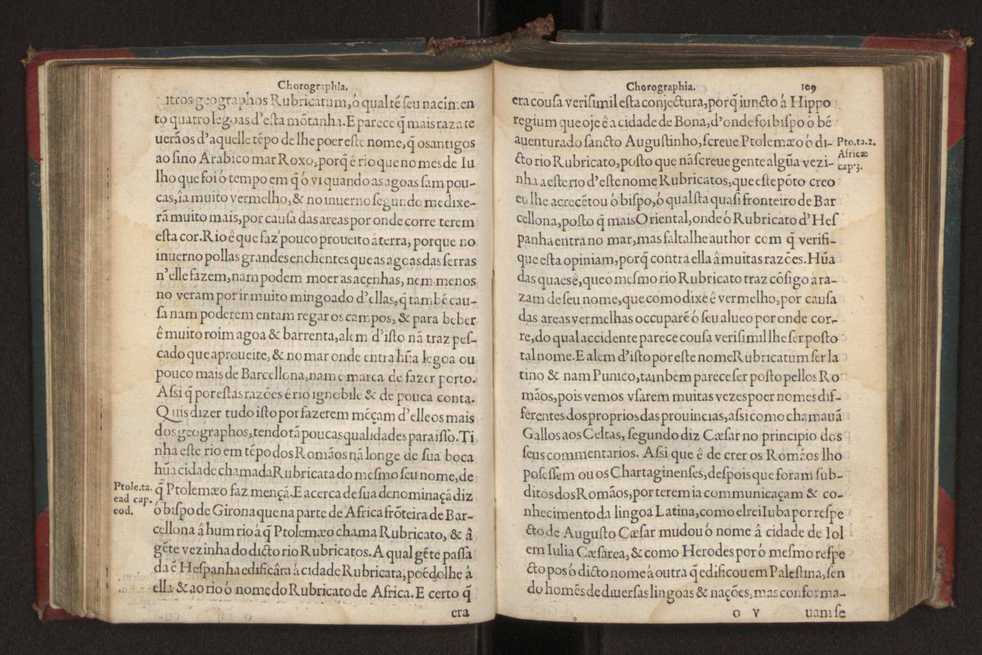 Chorographia.
itros geographos Rubricatum, ó qual té seu nacimen
to quatro legoas d'esta mõtanha. E parece q̃ mais razã te
uerã os d'aquelle tẽpo de lhe poer este nome, q̃ os antigos
ao sino Arabico mar Roxo, porq̃ ê rio que no mes de Iu
lho que foi ó tempo em q̃ ó vi quando as agoas sam pou-
cas, ia muito vermelho, & no inuerno segundo me dixe-
rã muito mais, por causa das areas por onde corre terem
esta cor. Rio ê que faz pouco proueito â terra, porque no
inuerno pollas grandes enchentes que as agoas das serras
n'elle fazem, nam podem moer as açenhas, nem menos
no veram por ir muito mingoado d'ellas, q̃ també cau-
sa nam poderem entam regar os campos, & para beber
ê muito roim agoa & barrenta, alem d'isto nã traz pes-
cado que aproueite, & no mar onde entra hũa legoa ou
pouco mais de Barcellona, nam e marca de fazer porto.
Assi q̃ por estas razões é rio ignobile & de pouca conta.
Quis dizer tudo isto por fazerem mẽçam d'elle os mais
dos geographos, tendo tã poucas qualidades para isso. Ti
nha este rio em tẽpo dos Romãos nã longe de sua boca
hũa cidade chamada Rubricata do mesmo seu nome, de
Ptole.ta. ead cap. eod.
q̃ Ptolemæo faz mençã. E acerca de sua denominaçã diz
ó bispo de Girona que na parte de Africa frõteira de Bar-
cellona â hum rio â q̃ Ptolemæo chama Rubricato, & â
gẽte vezinha do dicto rio Rubricatos. A qual gẽte passa
da ẽ Hespanha edificâra â cidade Rubricata, poẽdolhe â
ella & ao rio ó nome do Rubricato de Africa. E certo q̃
era
Chorographia. 109
era cousa verisimil esta conjectura, porq̃ iuncto â Hippo
regium que oje ê a cidade de Bona, d'onde foi bispo ó bẽ
auenturado sancto Augustinho, screue Ptolemæo ó di-
Pto.ta.2. Africæ cap.3.
cto rio Rubricato, posto que nã screue gente algũa vezi-
nha a este rio d'este nome Rubricatos, que este põto creo
eu lhe acrecẽtou ó bispo, ó qual sta quasi fronteiro de Bar
cellona, posto q̃ mais Oriental, onde ó Rubricato d'Hes
panha entra no mar, mas faltalhe author com q̃ verifi-
que esta opiniam, porq̃ contra ella â muitas razões. Hũa
das quaes ê, que o mesmo rio Rubricato traz cõsigo a ra-
zam de seu nome, que como dixe ê vermelho, por causa
das areas vermelhas occuparẽ ó seu alueo por onde cor-
re, do qual accidente parece cousa verisimil lhe ser posto
tal nome. E alem d'isto por este nome Rubricatum ser la
tino & nam Punico, tambem parece ser posto pellos Ro
mãos, pois vemos vsarem muitas vezes poer nomes dif-
ferentes dos proprios das prouincias, assi como chamauã
Gallos aos Celtas, segundo diz Cæsar no principio dos
seus commentarios. Assi que ê de crer os Romãos lho
posessem ou os Chartaginenses, despois que foram sub-
ditos dos Romãos, por terem ia communicaçam & co-
nhecimento da lingoa Latina, como elrei Iuba por respe
cto de Augusto Cæsar mudou ó nome â cidade de Iol
em Iulia Cæsarea, & como Herodes por ó mesmo respe
cto pos ó dicto nome â outra q̃ edificou em Palestina, sen
do homẽs de diuersas lingoas & nações, mas conforma-
O V uam se